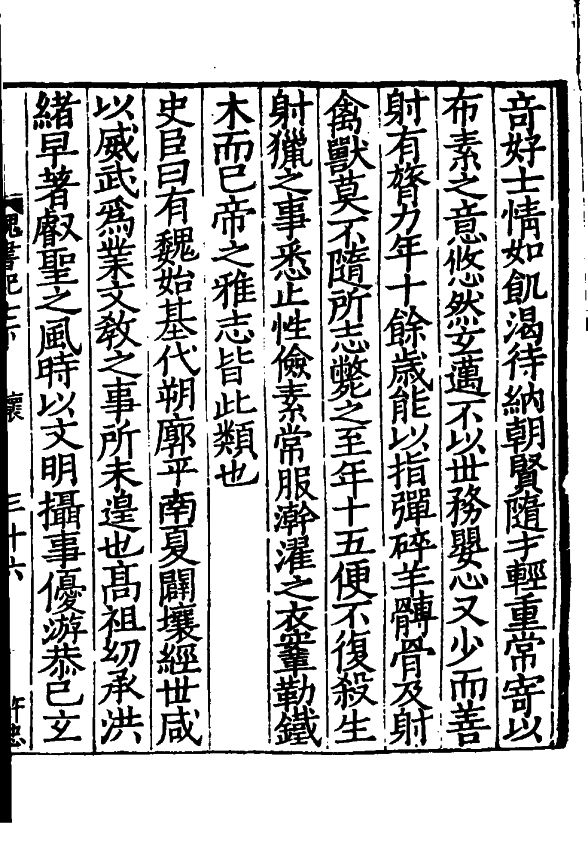 奇好士情如飢渴待納朝賢隨才輕重常寄以
布素之意悠然玄邁不以世務嬰心又少而善
射有膂力年十餘歲能以指彈碎羊髆骨及射
禽獸莫不隨所志斃之至年十五便不復殺生
射獵之事悉止性儉素常服澣濯之衣鞌勒鐵
木而已帝之雅志皆此類也
史臣曰有魏始基代朔廓平南夏闢壤經世咸
以威武爲業文教之事所未遑也高祖幼承洪
緒早著叡聖之風時以文明攝事優游恭己玄
魏書紀七下
三十六